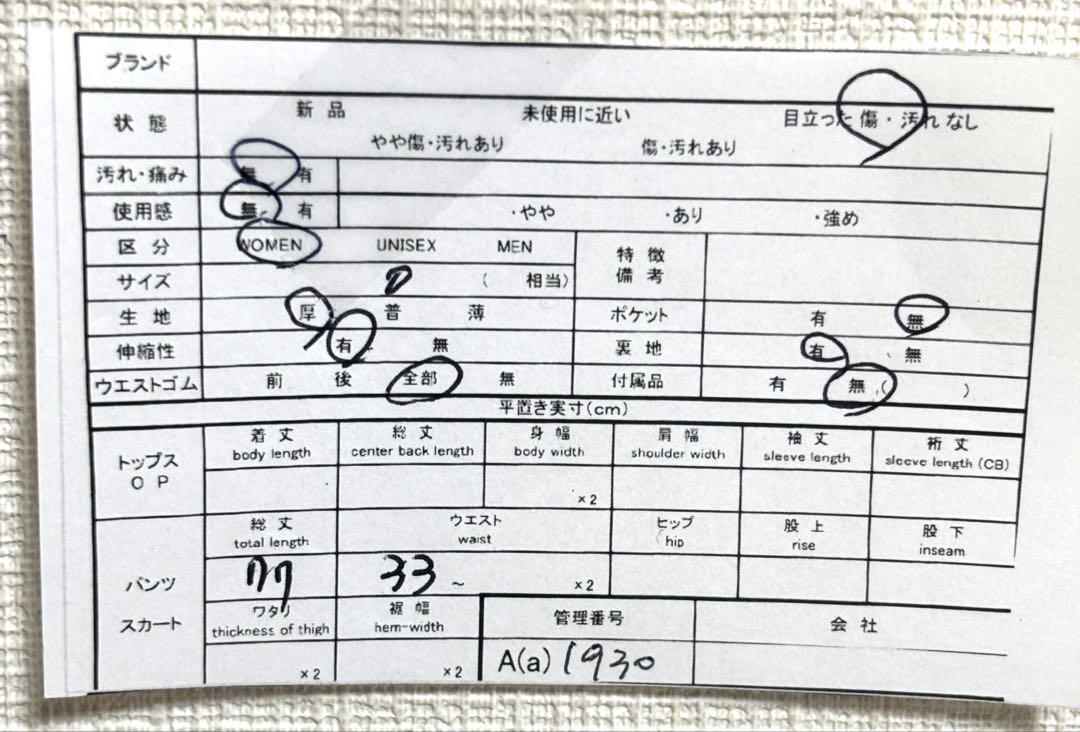 ブランド
状態 新品 未使用に近い 目立った傷・汚れなし
やや傷・汚れあり 傷・汚れあり
汚れ・痛み 無 有
使用感 無 有 ・やや ・あり ・強め
区分 WOMEN UNISEX MEN 特徴
備考
サイズ 0 ( 相当)
生地 厚 普 薄 ポケット 有 無
伸縮性 有 無 裏地 有 無
ウエストゴム 前 後 全部 無 付属品 有 無 ( )
平置き実寸(cm)
トップス
OP
着丈 総丈 身幅 肩幅 袖丈 裄丈
body length center back length body width shoulder width sleeve length sleeve length (CB)
×2
総丈 ウエスト ヒップ 股上 股下
total length waist hip rise inseam
パンツ
スカート
77 33 ~ ×2
ワタリ 裾幅 管理番号 会社
thickness of thigh hem-width
×2 ×2 A(a) 1930